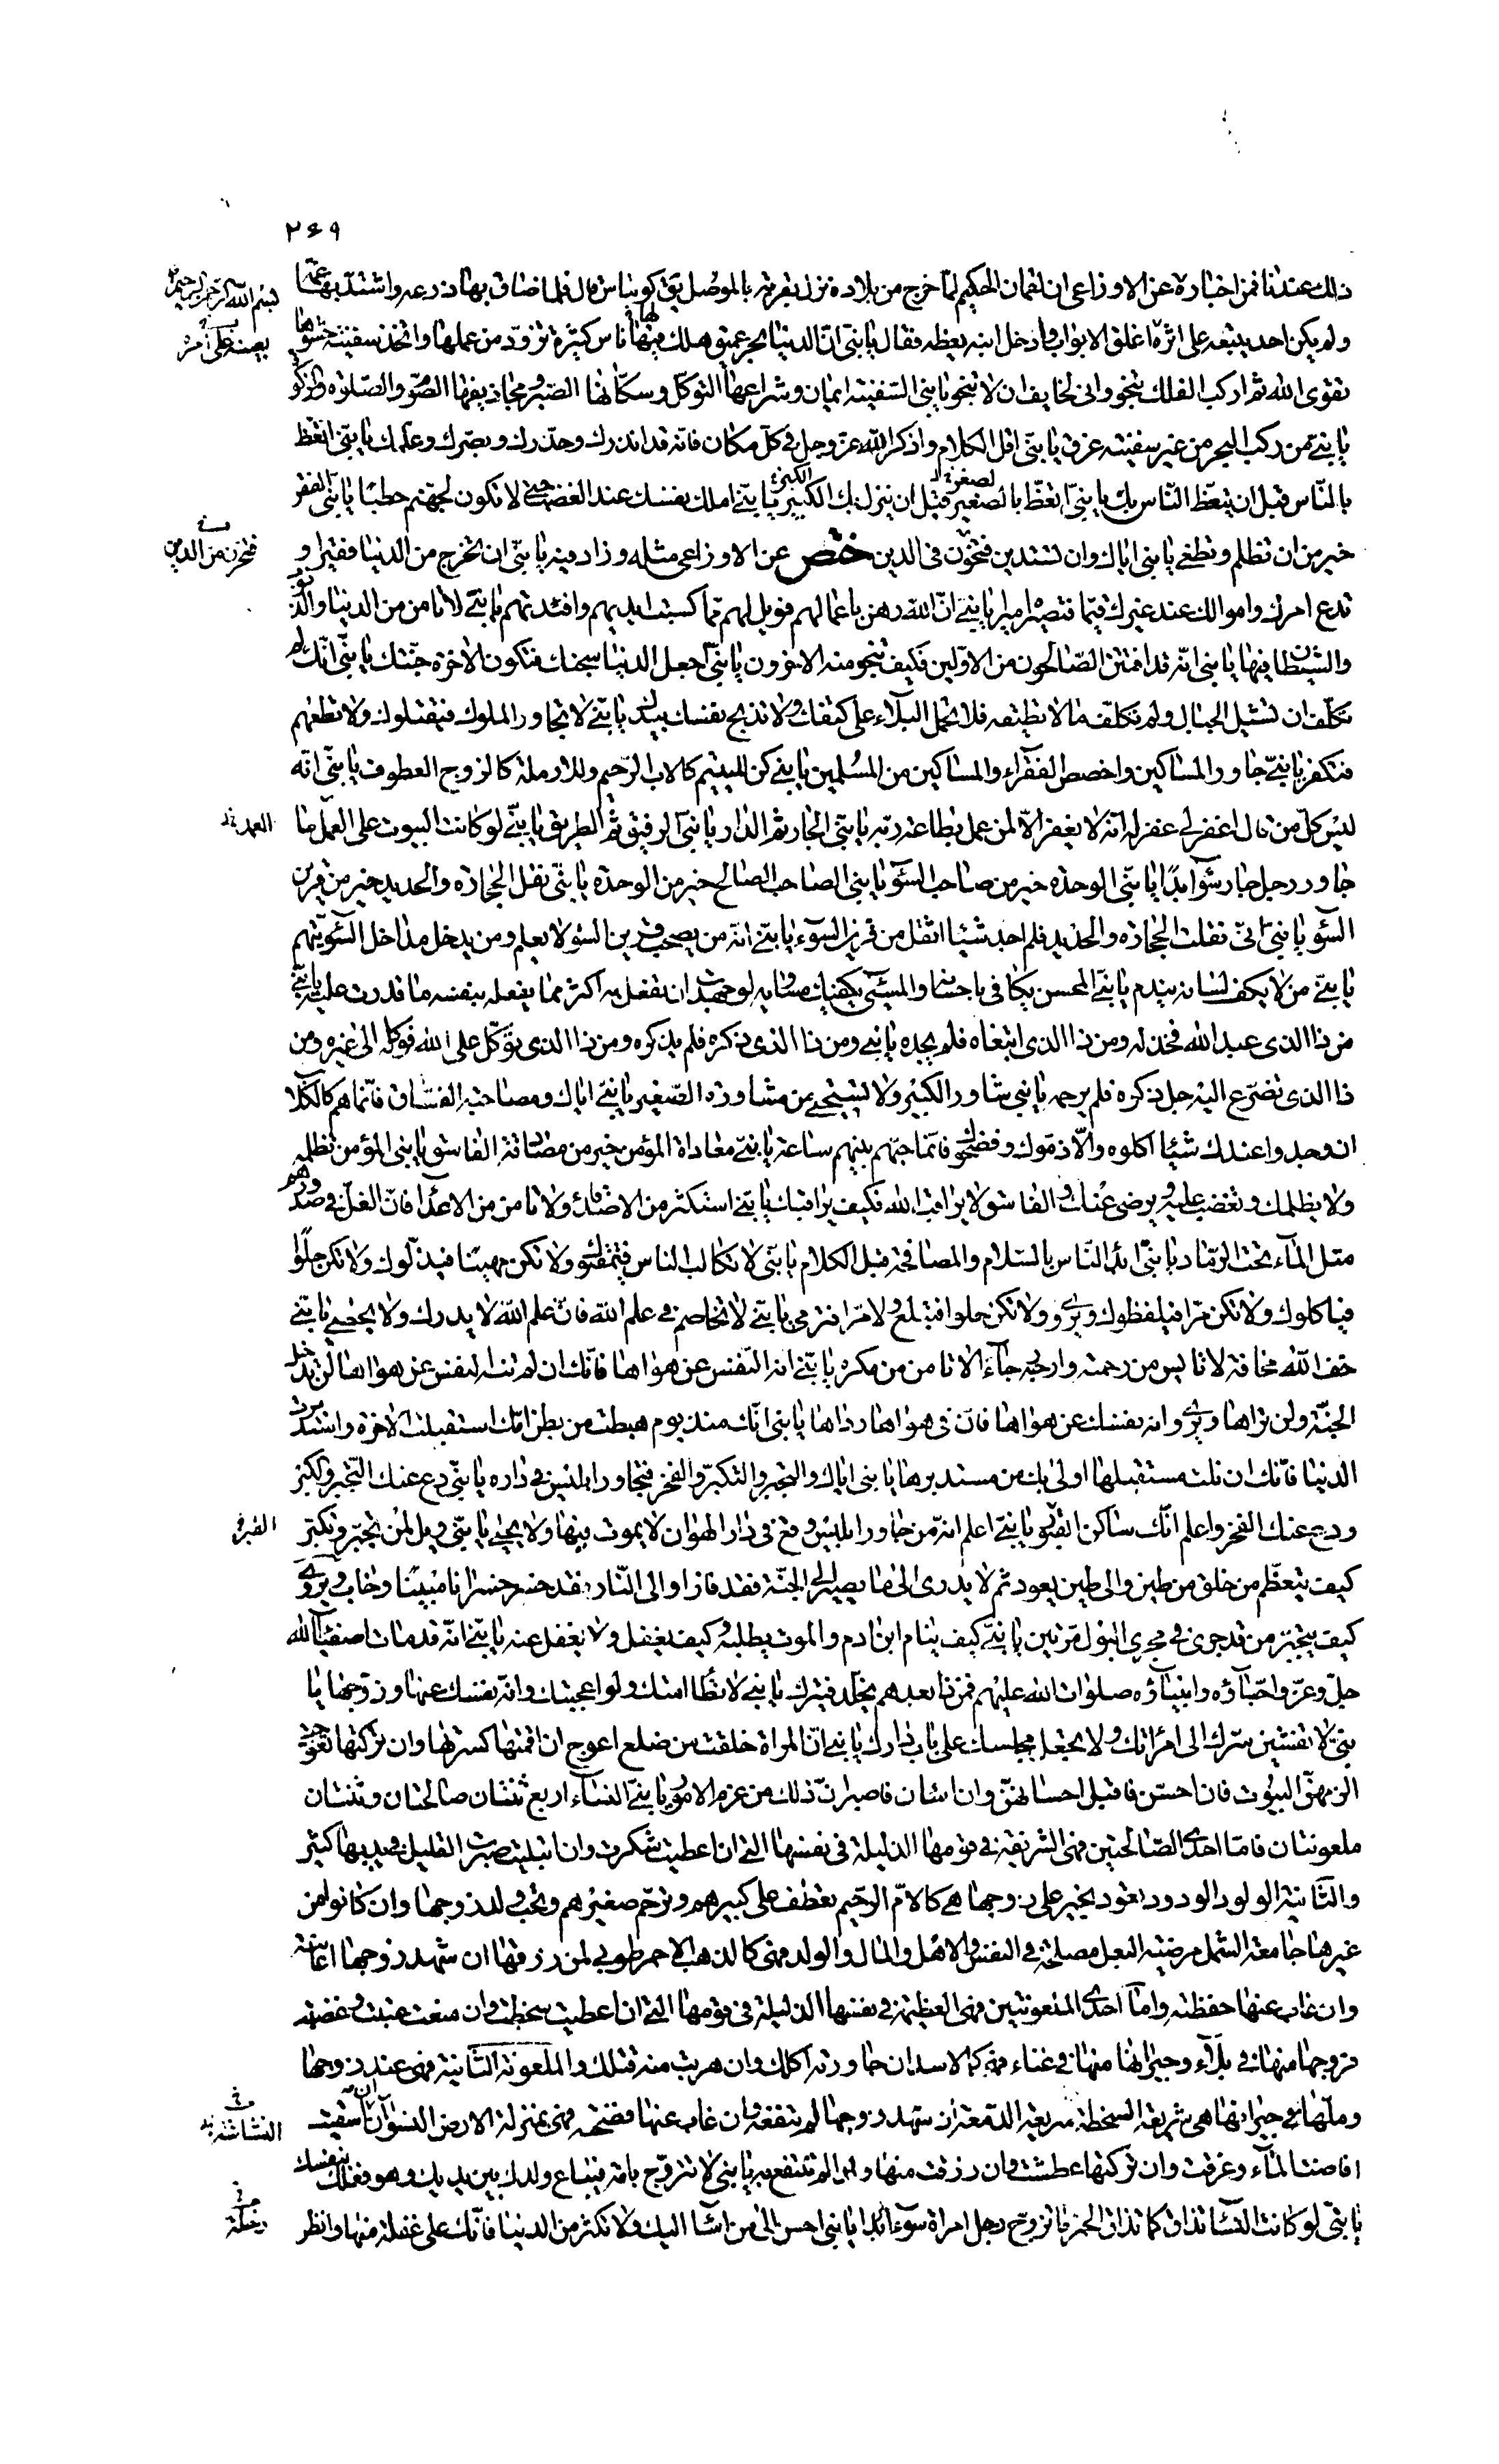 ٢٤٩
ذلك عندنا فمن اخباره عن الاوزاعى ان لقمان الحكيم لمّا خرج من بلاده نزل بقرية بالموصل يق لها كوماس قال فلما ضاق بها ذرعه واشتدّ بها غمّه
ولم يكن احد يتبعه على اثره اغلق الابواب وادخل ابنه يعظه فقال يا بنىّ انّ الدنيا بحر عميق هلك فيها ناس كثير تزوّد من عملها واتخذ سفينة حشوها
تقوى الله ثم اركب الفلك تنجو وانى لخايف ان لا تنجو يا بنى السّفينة ايمان وشراعها التوكّل وسكّانها الصّبر ومجاذيفها الصّوم والصّلوة والزكوة
يا بنىّ من ركب البحر من غير سفينة غرق يا بنىّ اقلّ الكلام واذكر الله عزّ وجل فى كلّ مكان فانّه قد انذرك وحذّرك وبصّرك وعلّمك يا بنىّ اتّعظ
بالنّاس قبل ان يتّعظ النّاس بك يا بنىّ اتّعظ بالصّغير قبل ان ينزل بك الكبير يا بنىّ املك نفسك عند الغضب حتى لا تكون لجهنّم حطبًا يا بنىّ الفقر
خير من ان تظلم وتطغى يا بنىّ ايّاك وان تستدين فتخون فى الدين ختص عن الاوزاعى مثله وزاد فيه يا بنىّ ان تخرج من الدنيا فقيرا و
تدع امرك واموالك عند غيرك قيّما فتصيّره اميرا يا بنىّ انّ الله رهن باعمالهم فويل لهم ممّا كسبت ايديهم وافئدتهم يا بنىّ لا تامن من الدنيا والذنوب
والشيطان فيها يا بنىّ انّه قد افتتن الصّالحون من الاوّلين فكيف تنجو منه الاخرون يا بنىّ اجعل الدنيا سجنك فتكون الاخرة جنّتك يا بنىّ انّك لم
تكلّف ان تشيل الجبال ولم تكلّف ما لا تطيقه فلا تحمل البلاء على كتفك ولا تذبح نفسك بيدك يا بنىّ لا تجاور الملوك فيقتلوك ولا تطعهم
فتكفر يا بنىّ جاور المساكين واخصص الفقراء والمساكين من المسلمين يا بنىّ كن لليتيم كالاب الرّحيم وللارملة كالزوج العطوف يا بنىّ انّه
ليس كلّ من قال اغفر لى غفر له انّه لا يغفر الّا لمن عمل بطاعة ربّه يا بنىّ الجار ثم الدار يا بنىّ الرفيق ثم الطريق يا بنىّ لو كانت البيوت على العمل ما
جاور رجل جار سوء ابدًا يا بنىّ الوحدة خير من صاحب السّوء يا بنىّ الصاحب الصالح خير من الوحدة يا بنىّ نقل الحجارة والحديد خير من قرين
السّوء يا بنىّ انّى نقلت الحجارة والحديد فلم اجد شيئا اثقل من قرين السّوء يا بنىّ انّه من يصحب قرين السّوء لا يسلم ومن يدخل مداخل السّوء يتّهم
يا بنىّ من لا يكفّ لسانه يندم يا بنىّ المحسن يكافى باحسانه والمسىء يكفيك مساويه لو جهدت ان تفعل به اكثر ممّا يفعله بنفسه ما قدرت عليه يا بنىّ
من ذا الذى عبد الله فخذله ومن ذا الذى ابتغاه فلم يجده يا بنىّ ومن ذا الذى ذكره فلم يذكره ومن ذا الذى توكّل على الله فوكله الى غيره ومن
ذا الذى تضرّع اليه جلّ ذكره فلم يرحمه يا بنىّ شاور الكبير ولا تستحيى من مشاورة الصّغير يا بنىّ ايّاك ومصاحبة الفسّاق فانّما هم كالكلاب
ان وجدوا عندك شيئا اكلوه والّا ذمّوك وفضحوك وانّما حبّهم بينهم ساعة يا بنىّ معاداة المؤمن خير من مصادقة الفاسق يا بنىّ المؤمن تظلمه
ولا يظلمك وتغضب عليه ويرضى عنك والفاسق لا يراقب الله فكيف يراقبك يا بنىّ استكثر من الاصدقاء ولا تامن من الاعداء فانّ الغلّ فى صدورهم
مثل الماء تحت الرّماد يا بنىّ ابدا النّاس بالسّلام والمصافحة قبل الكلام يا بنىّ لا تكالب الناس فيمقتوك ولا تكن مهينًا فيذلّوك ولا تكن حلوًا
فياكلوك ولا تكن مرّا فيلفظوك ويروى ولا تكن حلوا فتبلع ولا مرّا فترمى يا بنىّ لا تخاصم فى علم الله فانّ علم الله لا يدرك ولا يحصى يا بنىّ
خف الله مخافة لا تايس من رحمته وارجه رجاء لا تامن من مكره يا بنىّ انه النّفس عن هواها فانّك ان لم تنه النفس عن هواها لن تدخل
الجنّة ولن تراها ويروى وانه نفسك عن هواها فانّ فى هواها رداها يا بنىّ انّك منذ يوم هبطت من بطن امّك استقبلت الاخرة واستدبرت
الدنيا فانّك ان نلت مستقبلها اولى بك من مستدبرها يا بنىّ ايّاك والتجبّر والتكبّر والفخر فتجاور ابليس فى داره يا بنىّ دع عنك التجبّر والكبر
ودع عنك الفخر واعلم انّك ساكن القبور يا بنىّ اعلم انّه من جاور ابليس وقع فى دار الهوان لا يموت فيها ولا يحيى يا بنىّ ويل لمن تجبّر وتكبّر
كيف يتعظّم من خلق من طين والى طين يعود ثم لا يدرى الى ما يصير الى الجنّة فقد فاز او الى النّار فقد خسر خسرانا مبينًا وخاب ويروى
كيف يتجبّر من قد جرى فى مجرى البول مرّتين يا بنىّ كيف ينام ابن ادم والموت يطلبه وكيف يغفل ولا يغفل عنه يا بنىّ انّه قد مات اصفياء الله
جلّ وعزّ واحبّاؤه وانبياؤه صلوات الله عليهم فمن ذا بعدهم يخلّد فيترك يا بنىّ لا تطأ امتك ولو اعجبتك وانه نفسك عنها وزوّجها يا
بنىّ لا تفشينّ سرّك الى امراتك ولا تجعل مجلسك على باب دارك يا بنىّ انّ المراة خلقت من ضلع اعوج ان اقمتها كسرتها وان تركتها تعوّجت
الزمهنّ البيوت فان احسنّ فاقبل احسانهنّ وان اسان فاصبر انّ ذلك من عزم الامور يا بنىّ النساء اربع ثنتان صالحتان وثنتان
ملعونتان فامّا احدى الصّالحتين فهى الشريفة فى قومها الذليلة فى نفسها التى ان اعطيت شكرت وان ابتليت صبرت القليل فى يديها كثير
والثّانية الولود الودود تعود بخير على زوجها هى كالامّ الرّحيم تعطف على كبيرهم وترحم صغيرهم وتحبّ ولد زوجها وان كانوا من
غيرها جامعة الشمل مرضيّة البعل مصلحة فى النفس والاهل والمال والولد فهى كالذهب الاحمر طوبى لمن رزقها ان شهد زوجها اعانته
وان غاب عنها حفظته وامّا احدى الملعونتين فهى العظيمة فى نفسها الذليلة فى قومها التى ان اعطيت سخطت وان منعت عتبت وغضبت
فزوجها منها فى بلاء وجيرانها منها فى عناء فهى كالاسد ان جاورته اكلك وان هربت منه قتلك والملعونة الثّانية فهى عند زوجها
وملّها جيرانها هى سريعة السخطة سريعة الدّمعة ان شهد زوجها لم تنفعه وان غاب عنها فضحته فهى بمنزلة الارض النشّاشة ان اسقيت
افاضت الماء وغرقت وان تركتها عطشت وان رزقت منها ولدا لم تنتفع به يا بنىّ لا تتزوّج بامة فيباع ولدك بين يديك وهو فعلك بنفسك
يا بنىّ لو كانت النّساء تذاق كما تذاق الخمر ما تزوّج رجل امراة سوء ابدا يا بنىّ احسن الى من اساء اليك ولا تكثر من الدنيا فانّك على غفلة منها وانظر